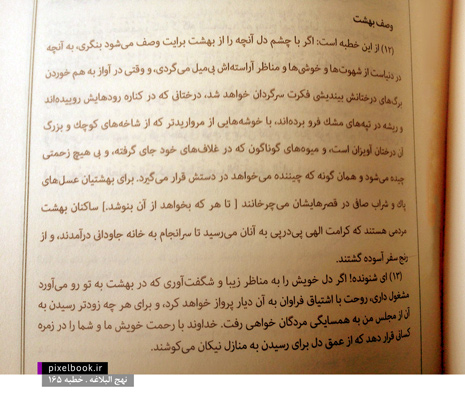 وصف بهشت
(۱۲) از این خطبه است: اگر با چشم دل آنچه را از بهشت برایت وصف می‌شود بنگری، به آنچه
در دنیاست از شهوت‌ها و خوشی‌ها و مناظر آراسته‌اش بی‌میل می‌گردی، و وقتی در آواز به هم خوردن
برگ‌های درختانش بیندیشی فکرت سرگردان خواهد شد، درختانی که در کناره رودهایش روییده‌اند
و ریشه در تپه‌های مشک فرو برده‌اند، با خوشه‌هایی از مرواریدتر که از شاخه‌های کوچک و بزرگ
آن درختان آویزان است، و میوه‌های گوناگون که در غلاف‌های خود جای گرفته، و بی هیچ زحمتی
چیده می‌شود و همان گونه که چیننده می‌خواهد در دستش قرار می‌گیرد. برای بهشتیان عسل‌های
پاک و شراب صافی در قصرهایشان می‌چرخانند [ تا هر که بخواهد از آن بنوشد.] ساکنان بهشت
مردمی هستند که کرامت الهی پی‌درپی به آنان می‌رسید تا سرانجام به خانه جاودانی درآمدند، و از
رنج سفر آسوده گشتند.
(۱۳) ای شنونده! اگر دل خویش را به مناظر زیبا و شگفت‌آوری که در بهشت به تو رو می‌آورد
مشغول داری، روحت با اشتیاق فراوان به آن دیار پرواز خواهد کرد، و برای هر چه زودتر رسیدن به
آن از مجلس من به همسایگی مردگان خواهی رفت. خداوند با رحمت خویش ما و شما را در زمره
کسانی قرار دهد که از عمق دل برای رسیدن به منازل نیکان می‌کوشند.
pixelbook.ir
نهج البلاغه . خطبه ۱۶۵